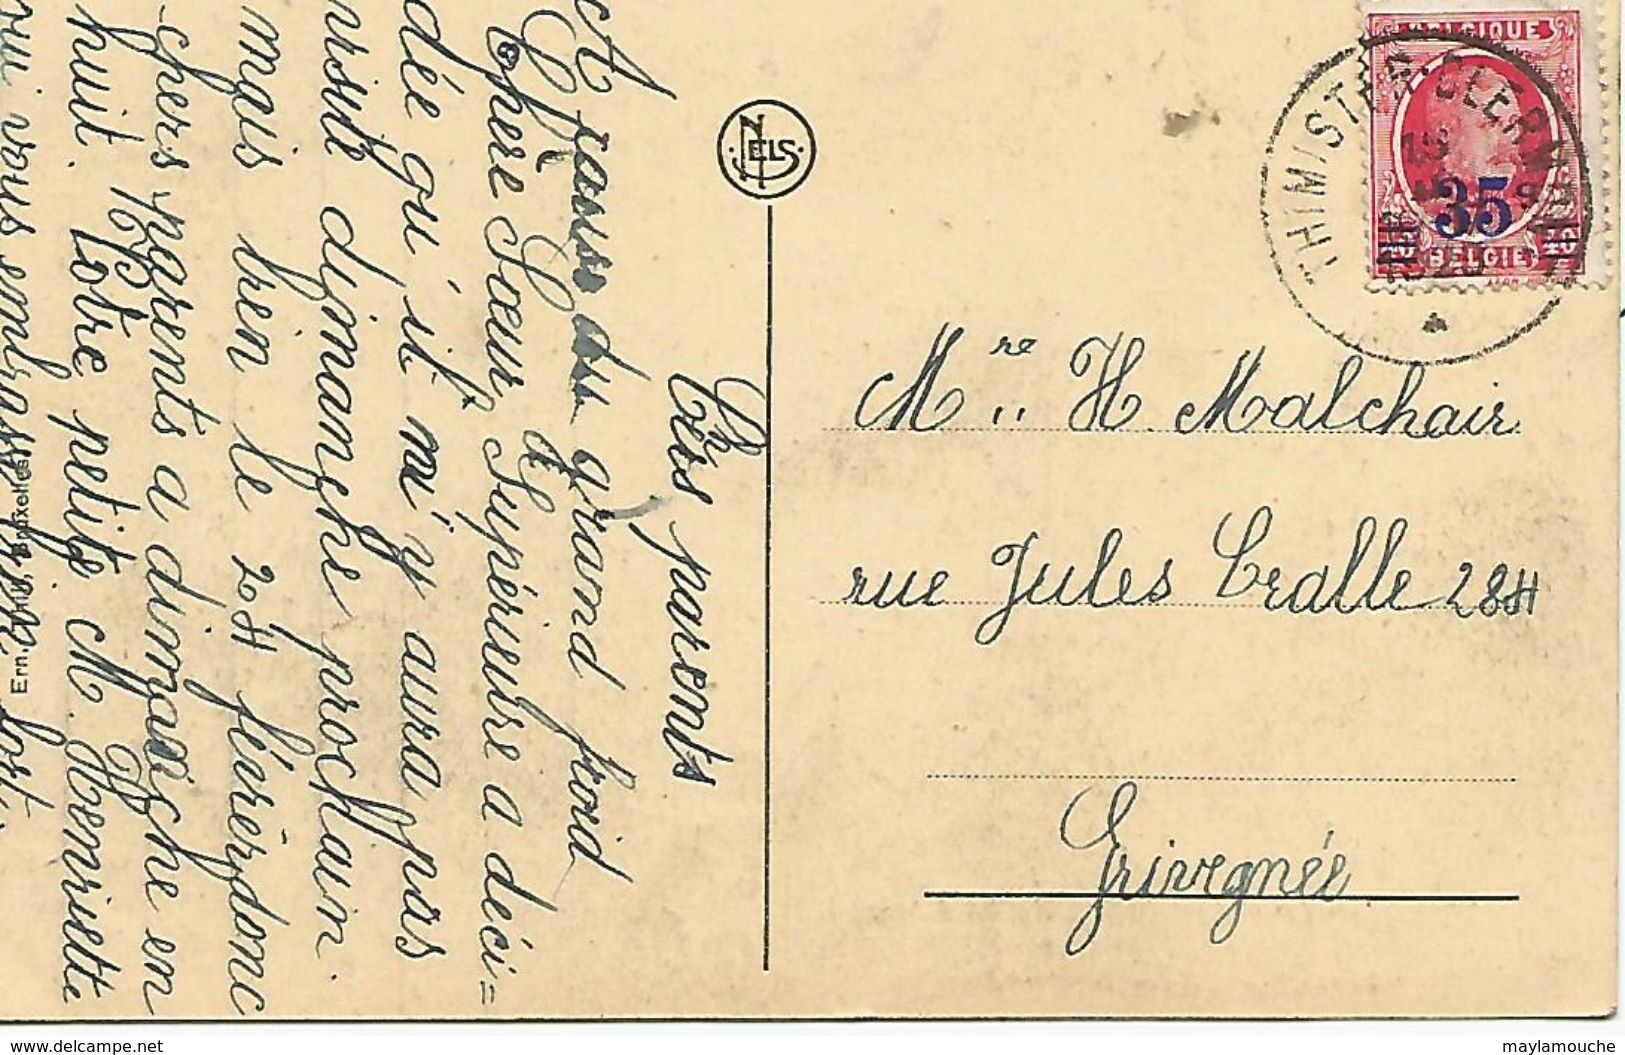 Très parents
A cause du grand froid
Chère Sœur Supérieure a déci=
dée qu'il m'y aura pas
visite dimanche prochain.
mais bien le 24 février, donc
chers parents a dimasche en
huit. Votre petite M. Henriette
qui vous embrasse bien fort.
Ern. Thill, Bruxelles
NELS
BELGIQUE
35
BELGIE
THIMISTER-CLERMONT
Mre H. Malchair
rue Jules Cralle 284
Grivegnée
www.delcampe.net
maylamouche